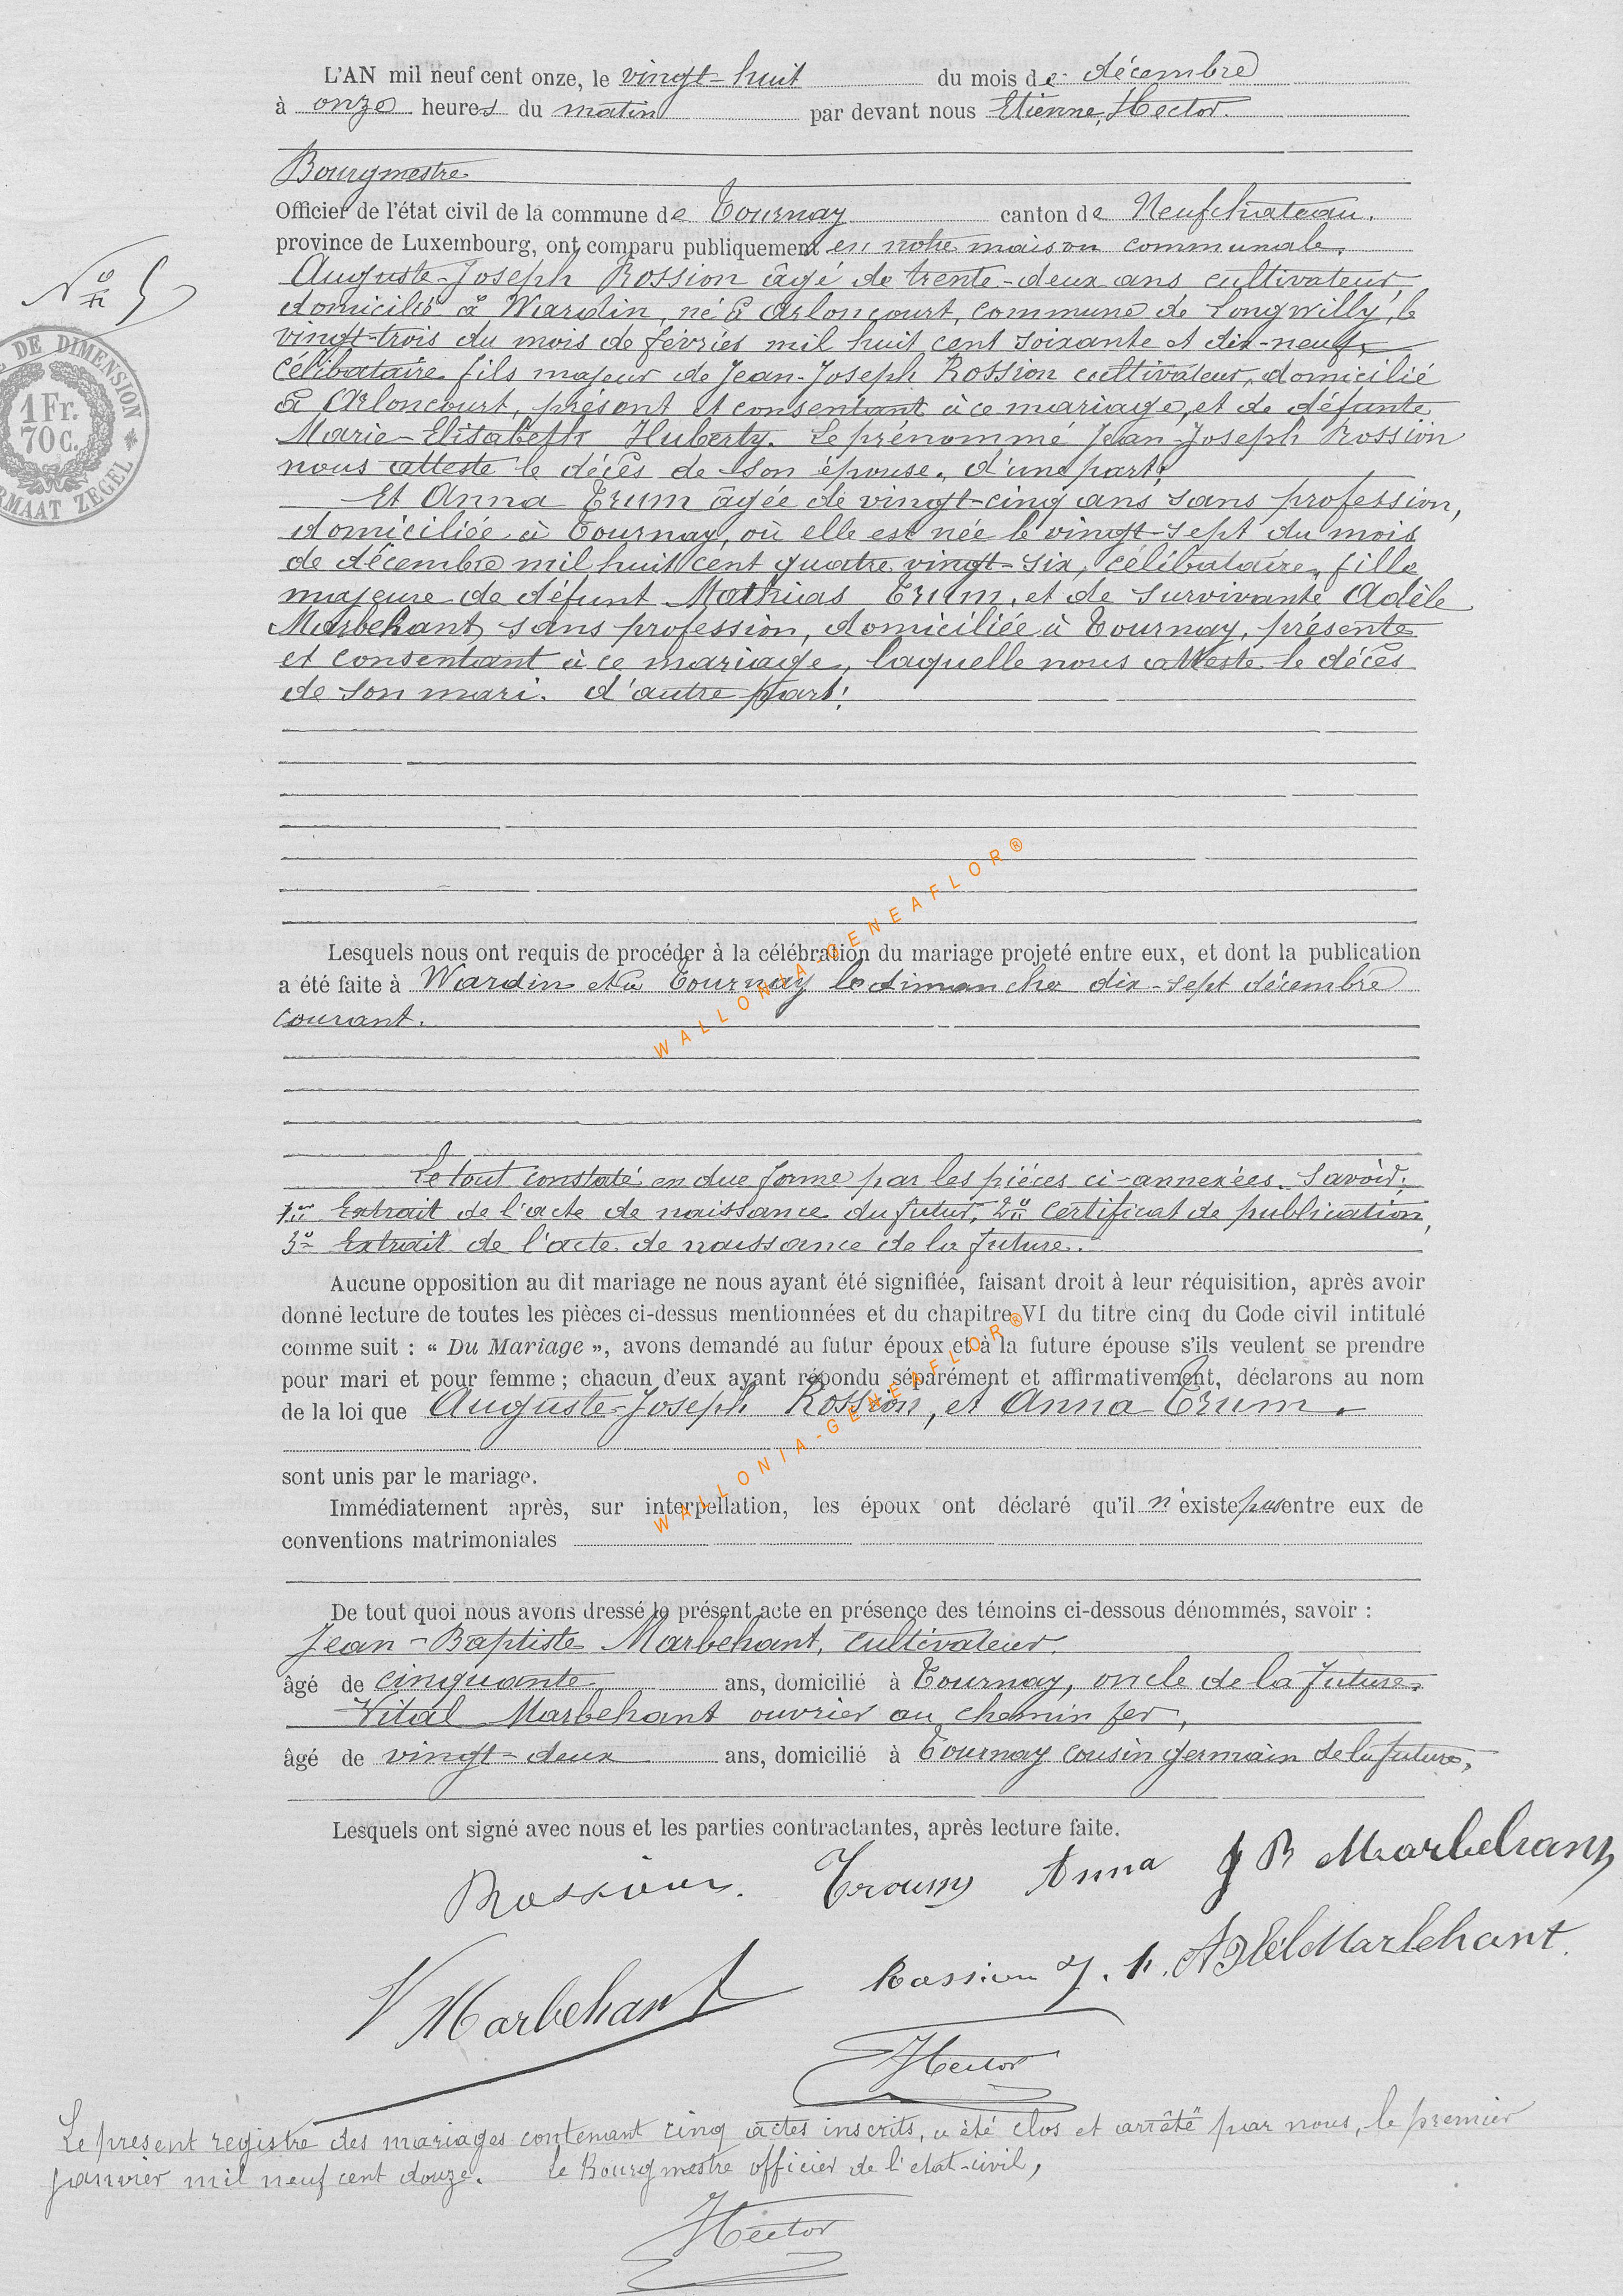 L'AN mil neuf cent onze, le vingt-huit du mois de décembre
à onze heures du matin par devant nous Etienne, Hector.
Bourgmestre
Officier de l'état civil de la commune de Tournay canton de Neufchateau.
province de Luxembourg, ont comparu publiquement en notre maison communale.
Auguste-Joseph Rossion âgé de trente-deux ans cultivateur,
domicilié à Wardin, né à Arloncourt, commune de Longwilly, le
vingt-trois du mois de févriés mil huit cent soixante et dix-neuf,
célibataire fils majeur de Jean-Joseph Rossion cultivateur, domicilié
à Arloncourt, présent et consentant à ce mariage, et de défunte
Marie-Elisabeth Huberty. Le prénommé Jean-Joseph Rossion
nous atteste le décès de son épouse. d'une part;
Et Anna Trum âgée de vingt-cinq ans sans profession,
domiciliée à Tournay, où elle est née le vingt-sept du mois
de décembre mil huit cent quatre vingt-six, célibataire, fille
majeure de défunt Mathias Trum, et de survivante Adèle
Marbehant, sans profession, domiciliée à Tournay, présente
et consentant à ce mariage, laquelle nous atteste le décès
de son mari. d'autre part;
Lesquels nous ont requis de procéder à la célébration du mariage projeté entre eux, et dont la publication
a été faite à Wardin et à Tournay le dimanche dix-sept décembre
courant.
Le tout constaté en due forme par les pièces ci-annexées. Savoir;
1° Extrait de l'acte de naissance du futur, 2° Certificat de publication,
3° Extrait de l'acte de naissance de la future.
Aucune opposition au dit mariage ne nous ayant été signifiée, faisant droit à leur réquisition, après avoir
donné lecture de toutes les pièces ci-dessus mentionnées et du chapitre VI du titre cinq du Code civil intitulé
comme suit : « Du Mariage », avons demandé au futur époux et à la future épouse s'ils veulent se prendre
pour mari et pour femme ; chacun d'eux ayant répondu séparément et affirmativement, déclarons au nom
de la loi que Auguste-Joseph Rossion, et Anna Trum.
sont unis par le mariage.
Immédiatement après, sur interpellation, les époux ont déclaré qu'il n'existe pas entre eux de
conventions matrimoniales
De tout quoi nous avons dressé le présent acte en présence des témoins ci-dessous dénommés, savoir :
Jean-Baptiste Marbehant, cultivateur.
âgé de cinquante ans, domicilié à Tournay, oncle de la future.
Vital Marbehant ouvrier au chemin fer,
âgé de vingt-deux ans, domicilié à Tournay cousin germain de la future,
Lesquels ont signé avec nous et les parties contractantes, après lecture faite.
Rossion. Troum Anna J B Marbehant
V Marbehant Rossion J. J. Adèl Marbehant.
E Hector
Le présent registre des mariages contenant cinq actes inscrits, a été clos et arrêté par nous, le premier
janvier mil neuf cent douze. Le Bourgmestre officier de l'etat-civil,
E Hector
N° 5
DE DIMENSION
1 Fr.
70 c.
RMAAT ZEGEL
WALLONIA-GENEAFLOR®
WALLONIA-GENEAFLOR®